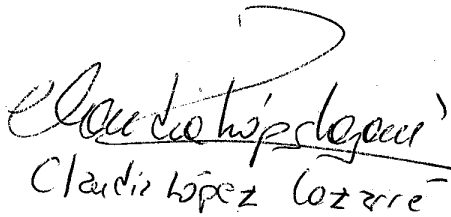 Claudia López Lozarré
Claudia López Lozarré